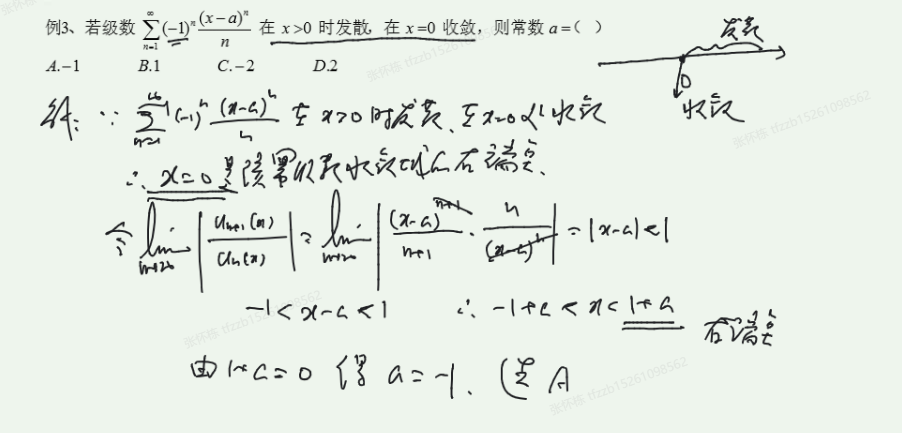 例3、若级数 $\sum_{n=1}^{\infty}(-1)^n\frac{(x-a)^n}{n}$ 在 x>0 时发散, 在 x=0 收敛, 则常数 a=( )
A.-1 B.1 C.-2 D.2
发散
0
收敛
解: ∵ $\sum_{n=1}^{\infty}(-1)^n\frac{(x-a)^n}{n}$ 在x>0时发散、在x=0处收敛
∴ x=0 是该幂级数收敛域的右端点.
令 $\lim_{n\to\infty}\left|\frac{u_{n+1}(x)}{u_n(x)}\right|=\lim_{n\to\infty}\left|\frac{(x-a)^{n+1}}{n+1}\cdot\frac{n}{(x-a)^n}\right|=|x-a|<1$
-1<x-a<1 ∴ -1+a<x<1+a
右端点
由1+a=0 得 a=-1. 选 A
张怀栋 tfzzb15261098562
张怀栋 tfzzb15261098562
张怀栋 tfzzb15261098562